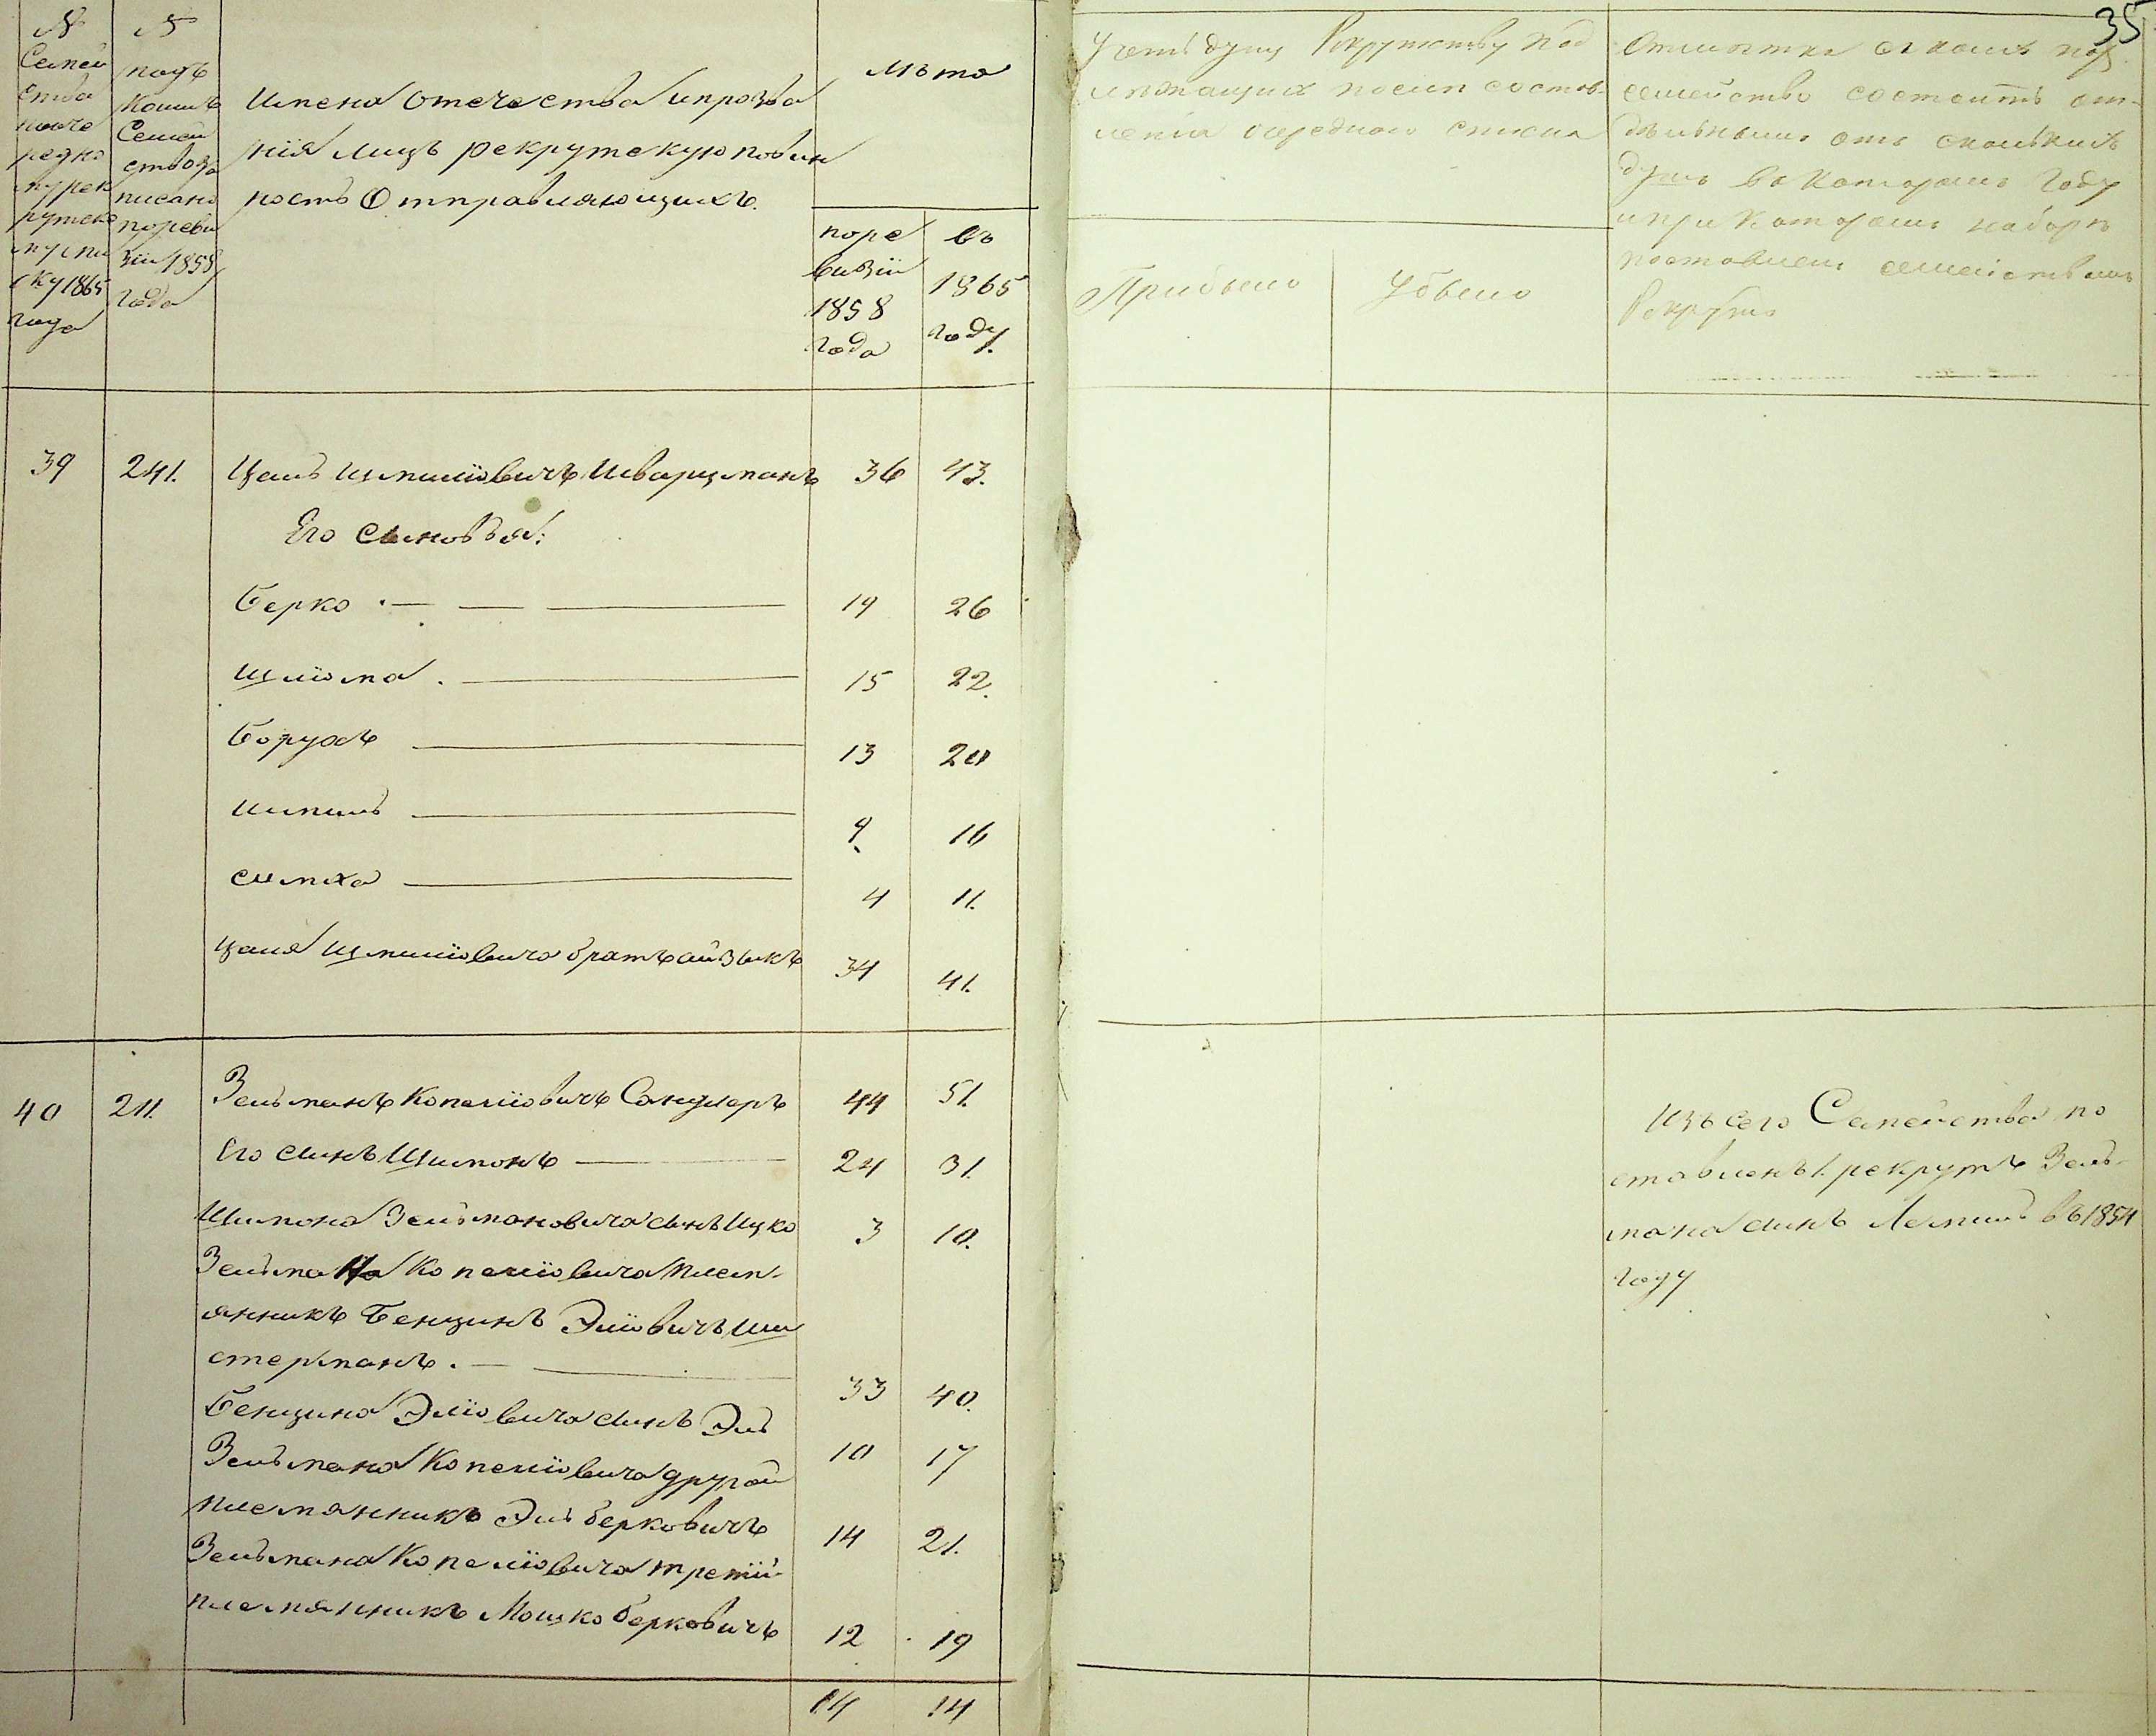 35
№
Семей
ства
пооче
редно
му рек
рутско
му спи
ску 1865
года
№
подъ
коимъ
Семей
ство за
писано
по реви
зіи 1858
года
Имена Отечества и прозва
нія лицъ рекрутскую повин
ность Отправляющихъ.
Лѣта
по ре
визіи
1858
года
въ
1865
году.
Учетъ душъ Рекрутству под
лежащихъ после состав-
ленія очереднаго списка
Прибыло
Убыло
Отмѣтка
семейство состоитъ от-
дѣльнымъ отъ сколькихъ
душъ въ которомъ году
и при которомъ наборѣ
поставленъ семействомъ
Рекрутъ
39 241. Цаль Шмилiовичъ Шварцманъ 36 43.
Его сыновья:
Берко 19 26
Шлiома 15 22.
Борухъ 13 20
Шмиль 9 16
Симха 4 11.
Цаля Шмилiовича братъ Айзыкъ 34 41.
40 211. Зельманъ Копелiовичъ Сандлеръ 44 51.
Его сынъ Шимонъ 24 31.
Шимона Зельмановича сынъ Ицко 3 10.
Зельмана Копелiовича плем-
янникъ Бенцинъ Элiовичъ Ши
стерманъ. 33 40.
Бенцина Элiовича сынъ Эль 10 17
Зельмана Копелiовича другой
племянникъ Эль Берковичъ 14 21.
Зельмана Копелiовича третiй
племянникъ Мошко Берковичъ 12 19
14 14
Изъ сего Семейства по
ставленъ 1. рекрутъ Зель-
мана сынъ Лемиль въ 1854
году